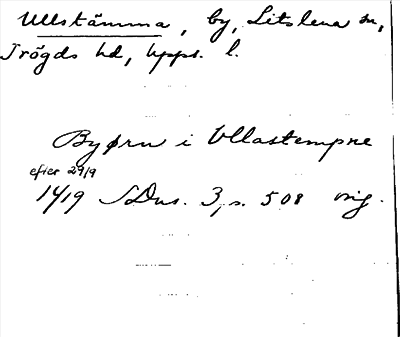 Ullstämma, by, Litslena sn,
Trögds hd, Upps. l.
Byørn i Vllastempne
efter 29/9
1419 SDns. 3, s. 508 orig.